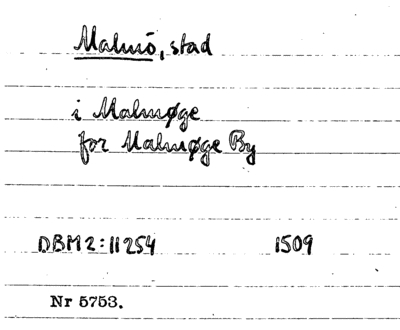 Malmö, stad
i Malmøge
for Malmøge By
DBM2:11254 1509
Nr 5753.